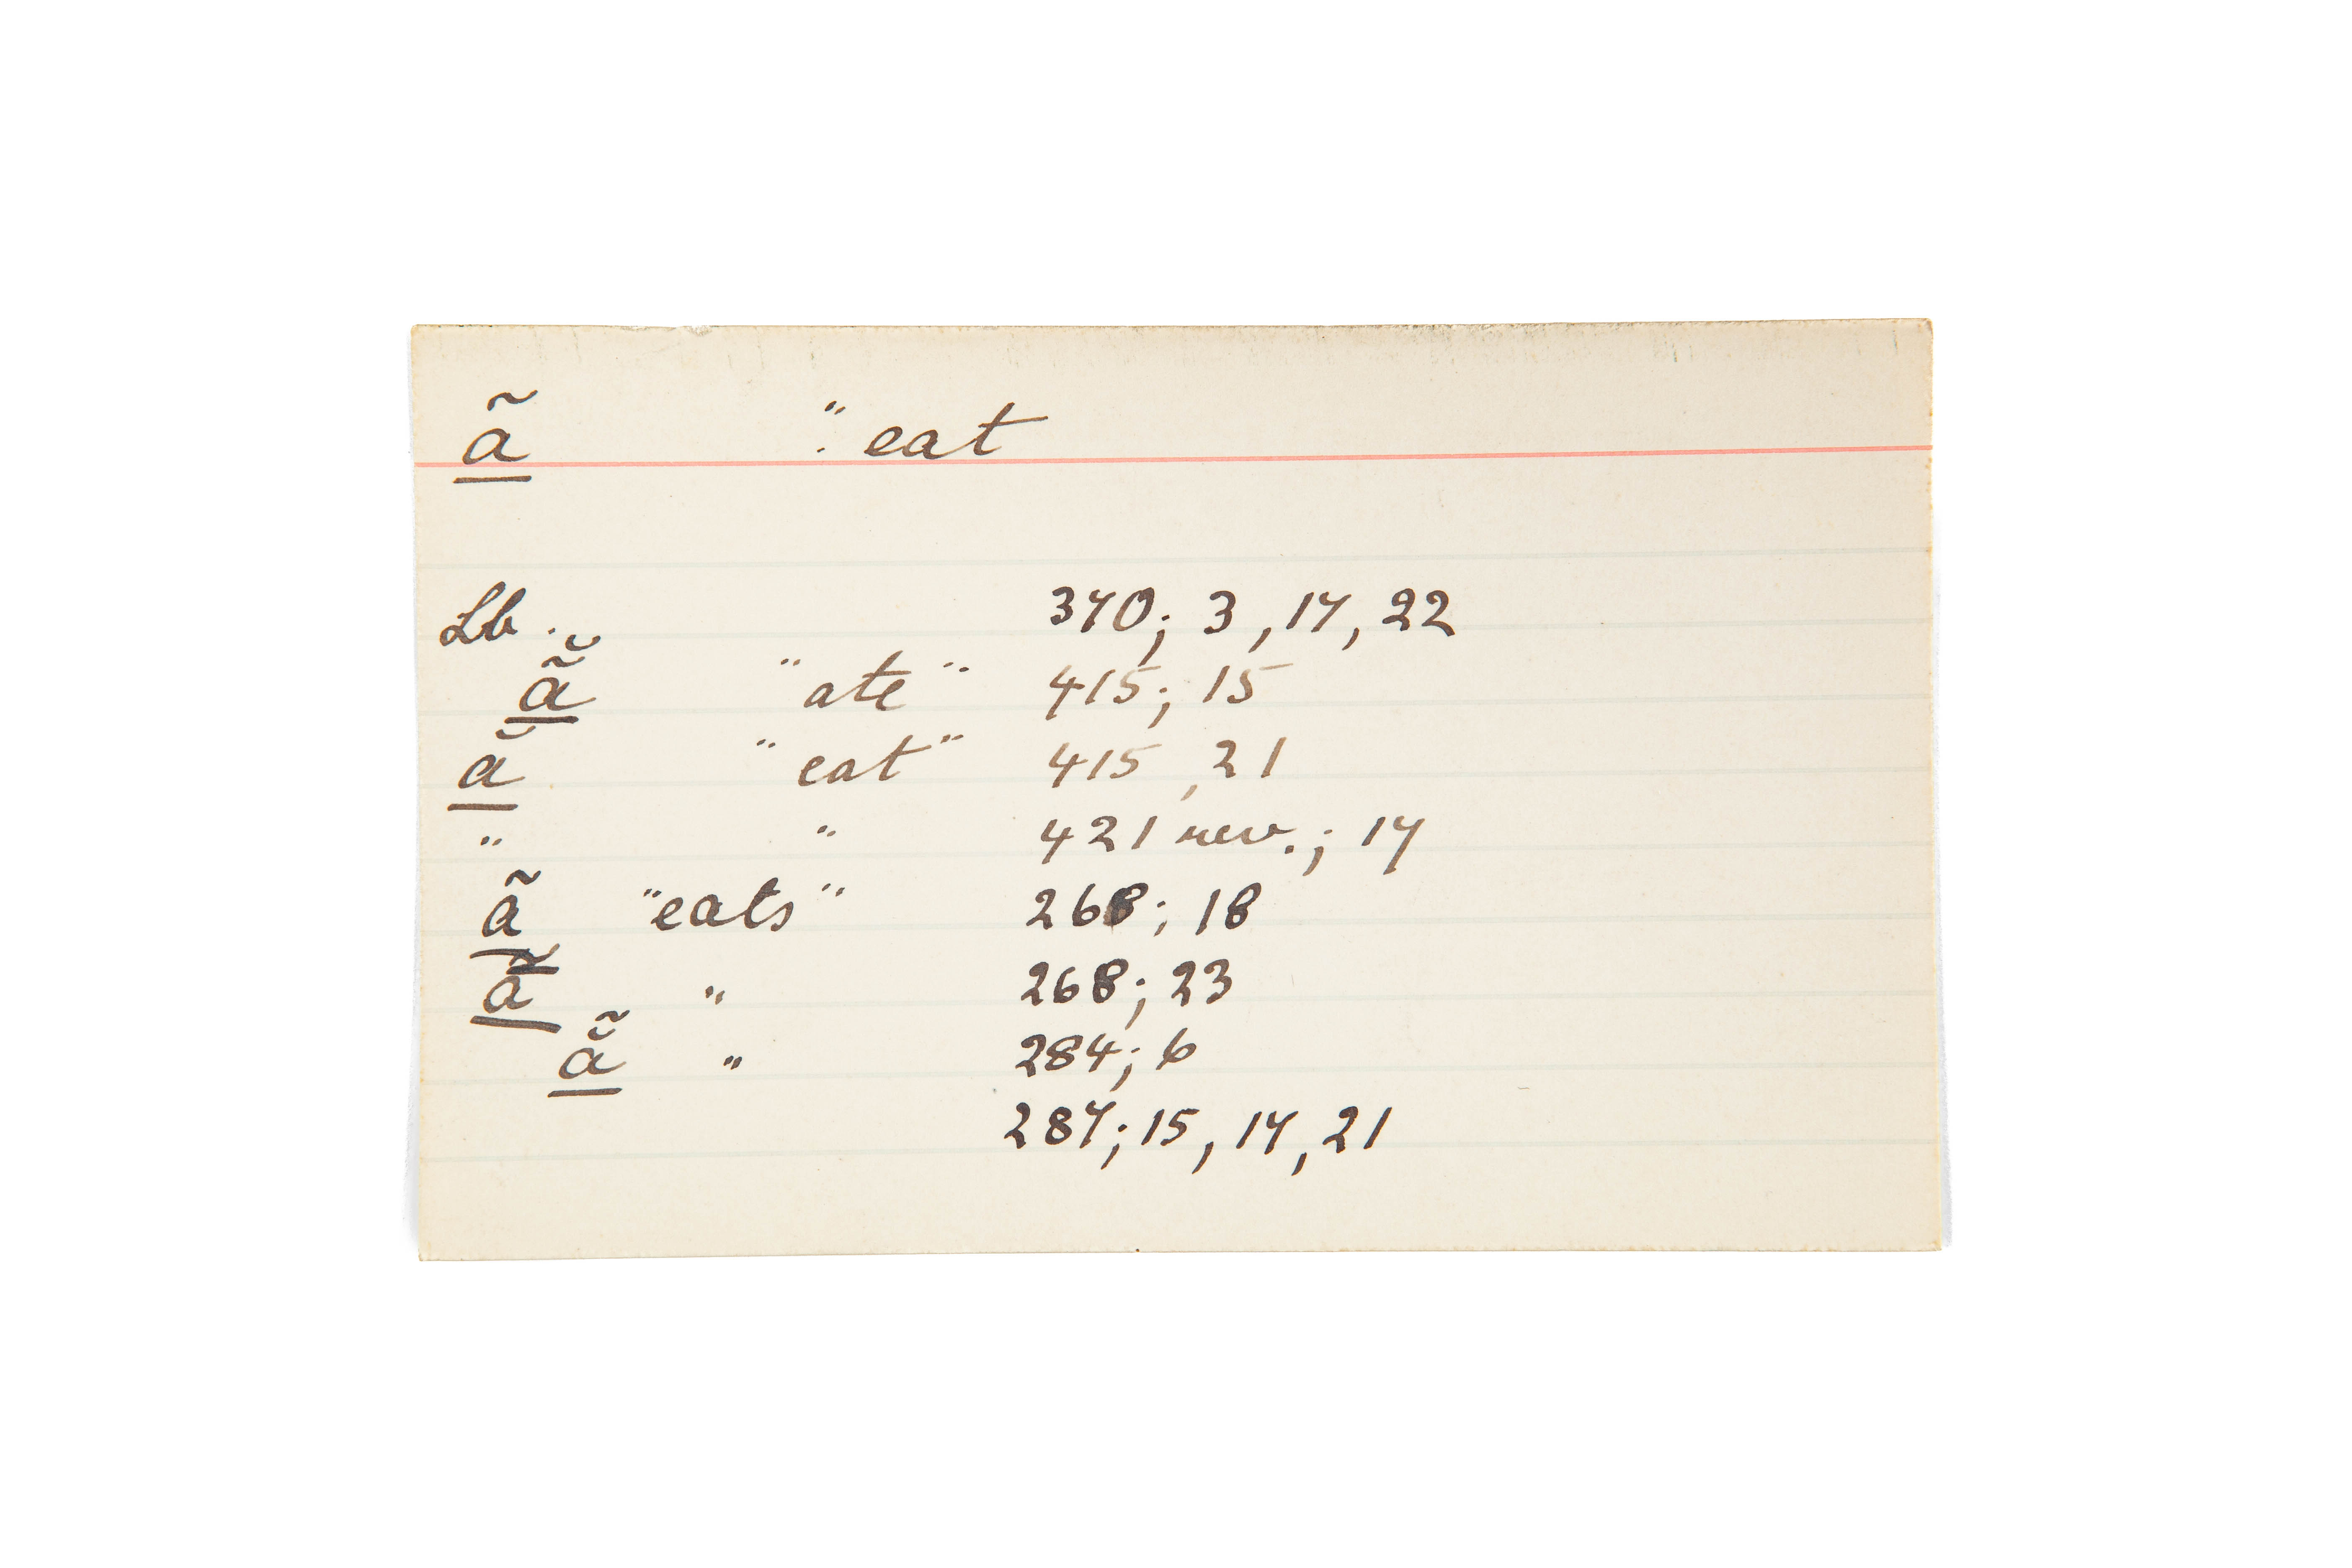 ã̱ " eat
Lb. 370; 3, 17, 22
ã̱̆ "ate" 415; 15
ã̱ "eat" 415, 21
" " 421 rev.; 17
ã̱ "eats" 268; 18
ã̱ " 268; 23
ã̱̆ " 284; 6
287; 15, 17, 21